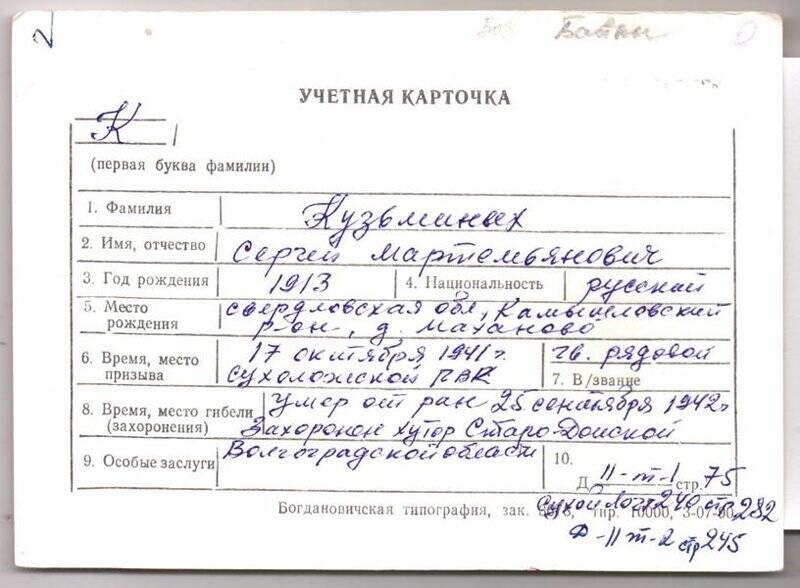 2
Баты
УЧЕТНАЯ КАРТОЧКА
К
(первая буква фамилии)
1. Фамилия Кузьминых
2. Имя, отчество Сергей Мартемьянович
3. Год рождения 1913 4. Национальность русский
5. Место рождения свердловская обл, Камышловский
р-он, д. Маханово
6. Время, место призыва 17 октября 1941 г.
Сухоложской РВК
гв. рядовой
7. В/звание
8. Время, место гибели (захоронения) Умер от ран 25 сентября 1942 г
Захоронен хутор Старо-Донской
Волгоградской области
9. Особые заслуги
10.
Д 11-т-1 стр. 75
Богдановичская типография, зак. тир. 10000, 3-07-90
Сухой Лог 240 стр 282
Ф-11 т-2 стр 245